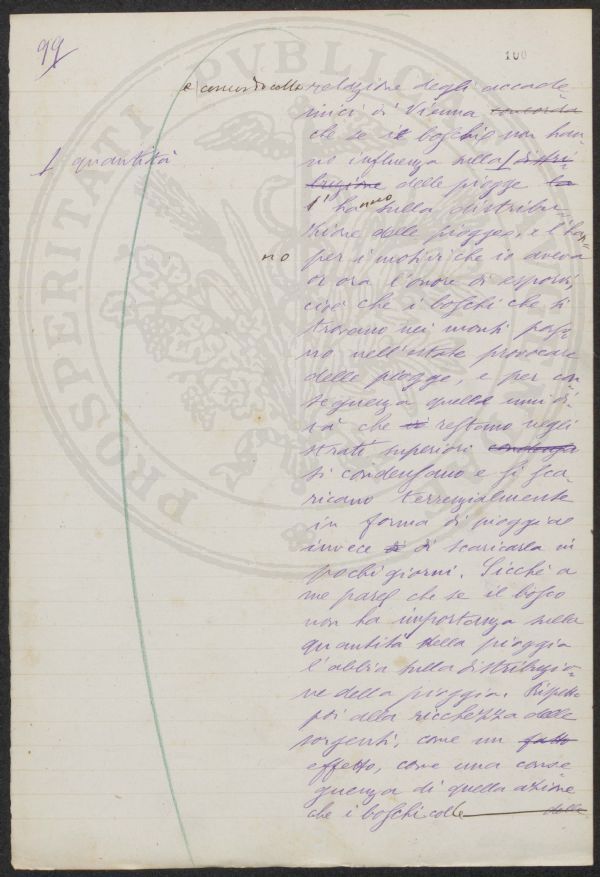 99
100
e concordo colla relazione degli accade-
mici di Vienna concorda
che se il boschio non han-
no influenza sulla ⌠ distri
⌠ quantità
buzione delle piogge la
l'hanno sulla distribu-
zione delle piogge, e l'han-
no per i motivi che io aveva
or ora l'onore di esporvi,
cioè che i boschi che si
trovano nei monti pos-
no nell'estate provocare
delle piogge, e per con
seguenza quelle umidi-
tà che si restano negli
strati superiori condensa
si condensano e si sca-
ricano terrenzialmente
in forma di pioggia
invece di di scaricarla in
pochi giorni. Sicchè a
me pare che se il bosco
non ha importanza sulla
quantità della pioggia
l'abbia sulla distribuzio-
ne della pioggia. Rispetto
poi alla ricchezza delle
sorgenti, come un fatto
effetto, come una conse
guenza di quella azione
che i boschi colle della
PROSPERITATI PUBLICAE